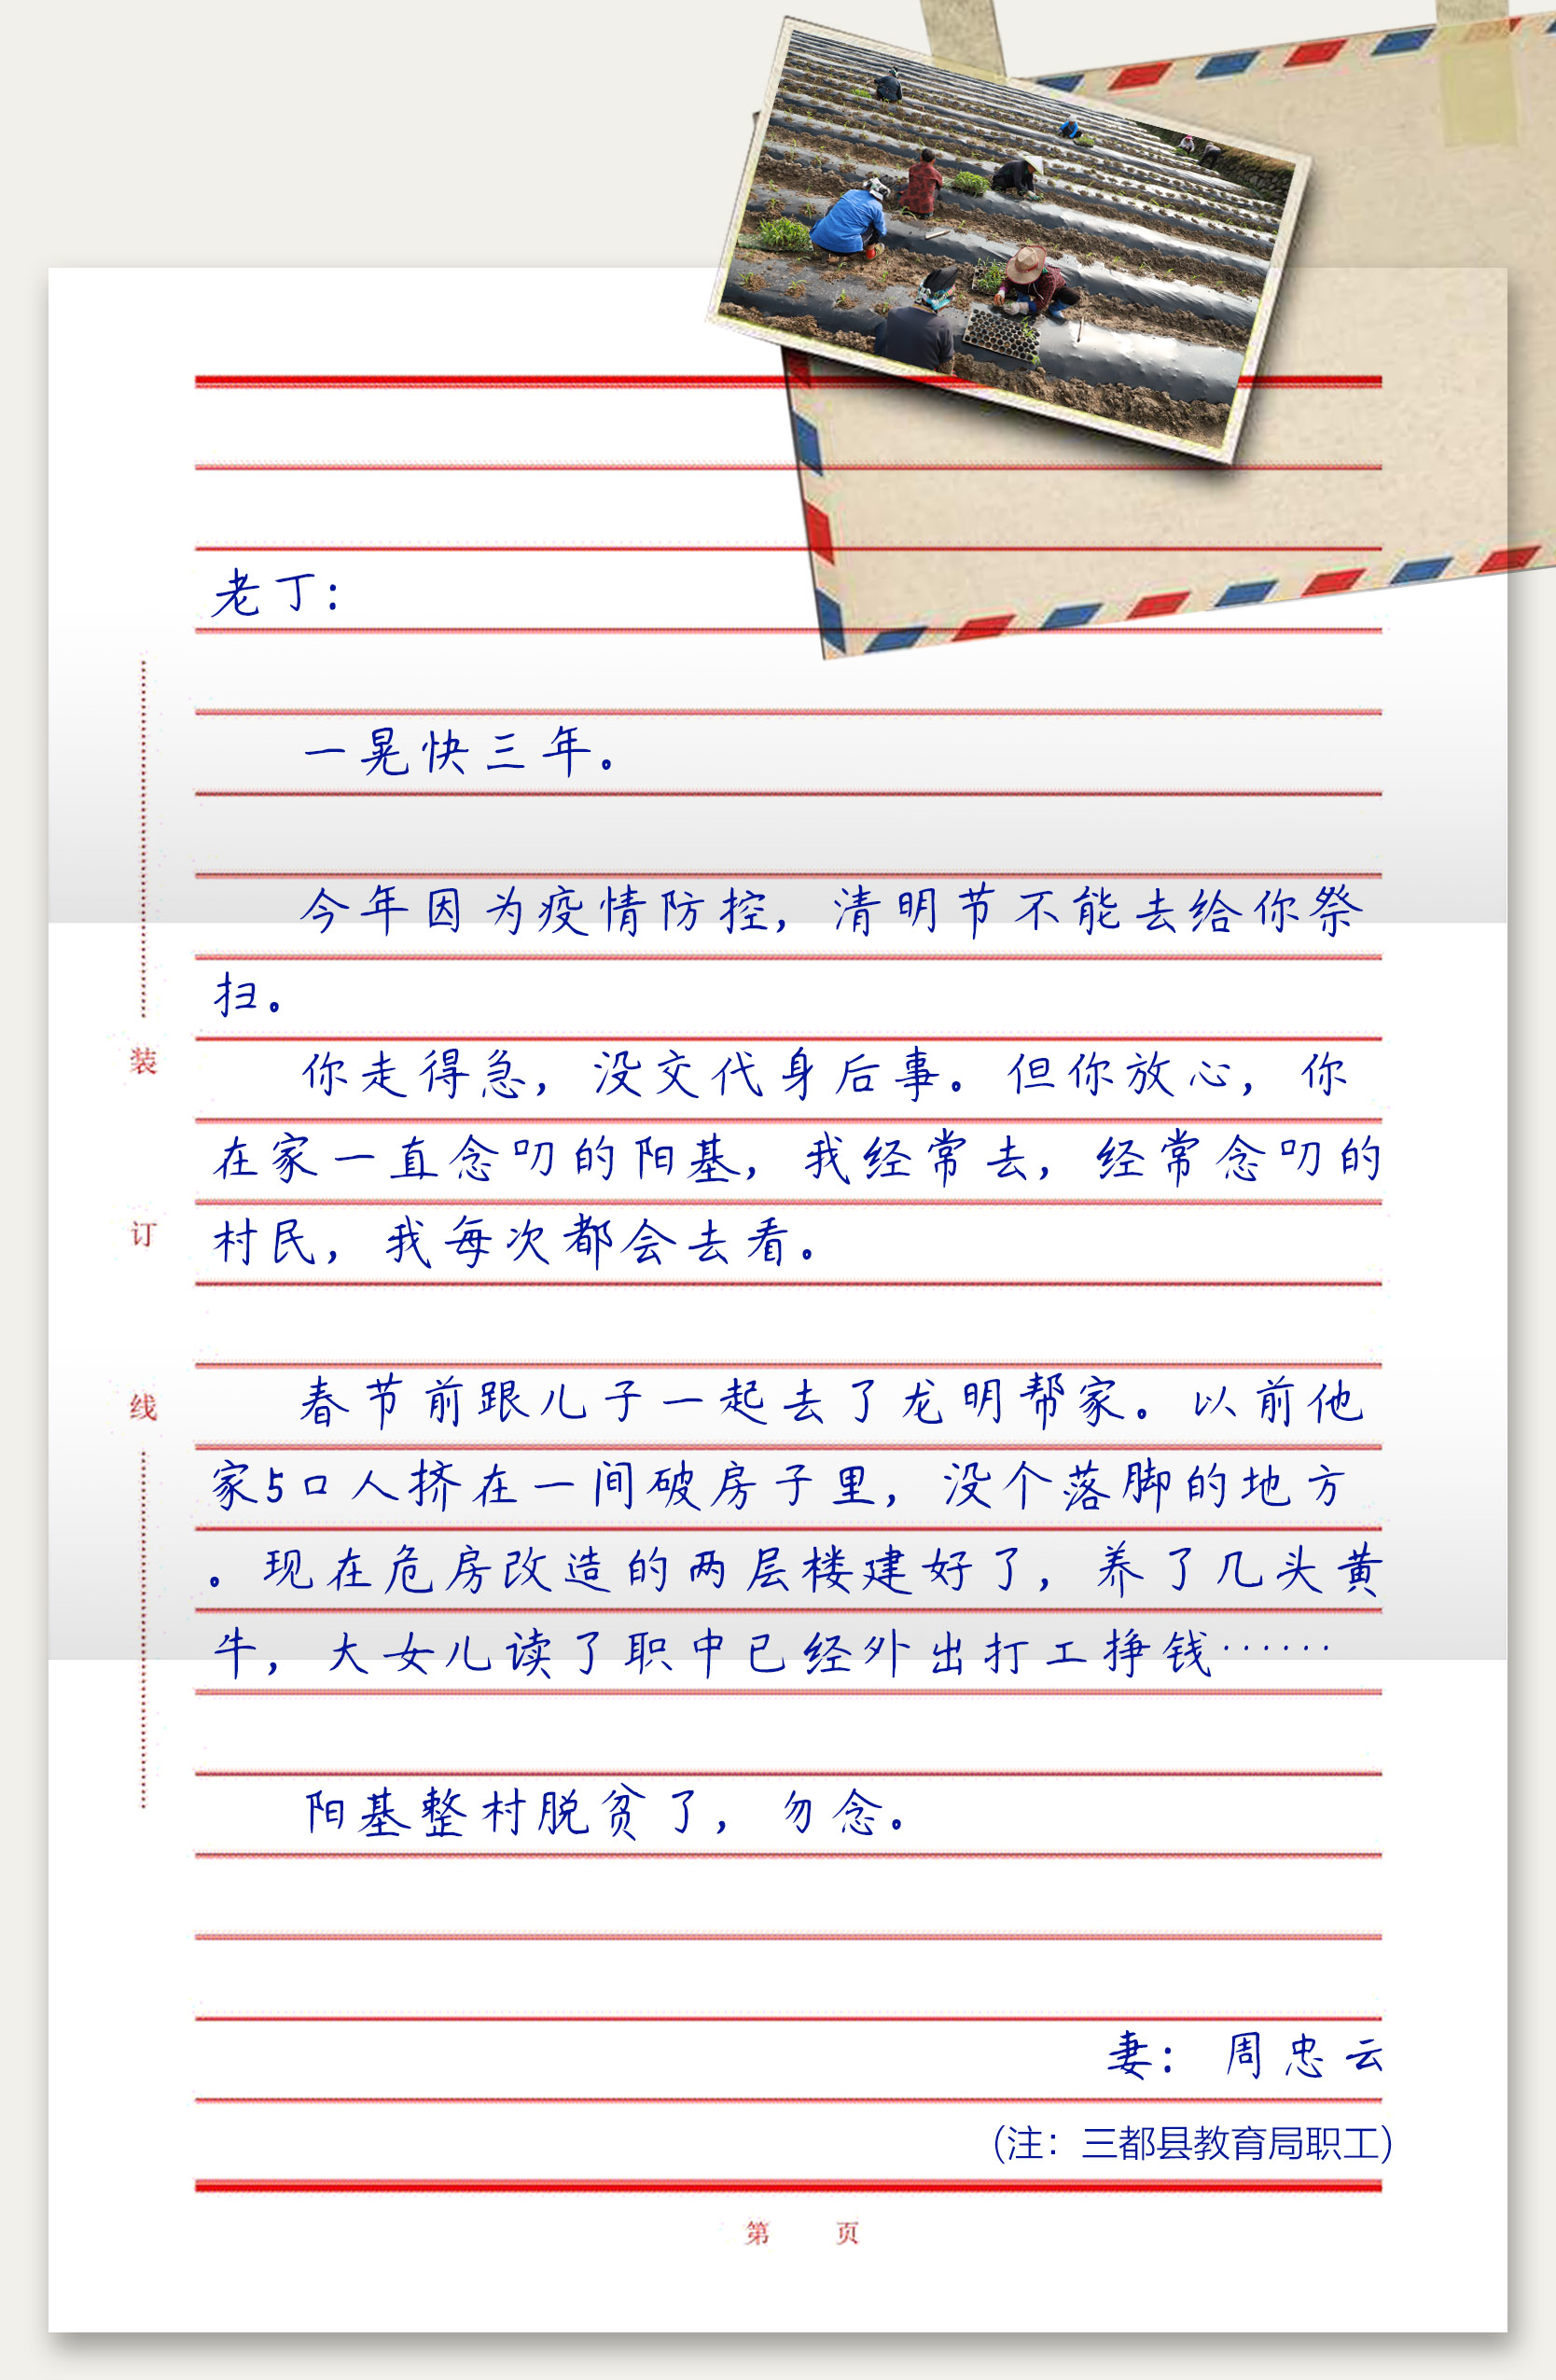 老丁：
一晃快三年。
今年因为疫情防控，清明节不能去给你祭
扫。
你走得急，没交代身后事。但你放心，你
在家一直念叨的阳基，我经常去，经常念叨的
村民，我每次都会去看。
春节前跟儿子一起去了龙明帮家。以前他
家5口人挤在一间破房子里，没个落脚的地方
。现在危房改造的两层楼建好了，养了几头黄
牛，大女儿读了职中已经外出打工挣钱……
阳基整村脱贫了，勿念。
妻：周忠云
（注：三都县教育局职工）
装
订
线
第 页